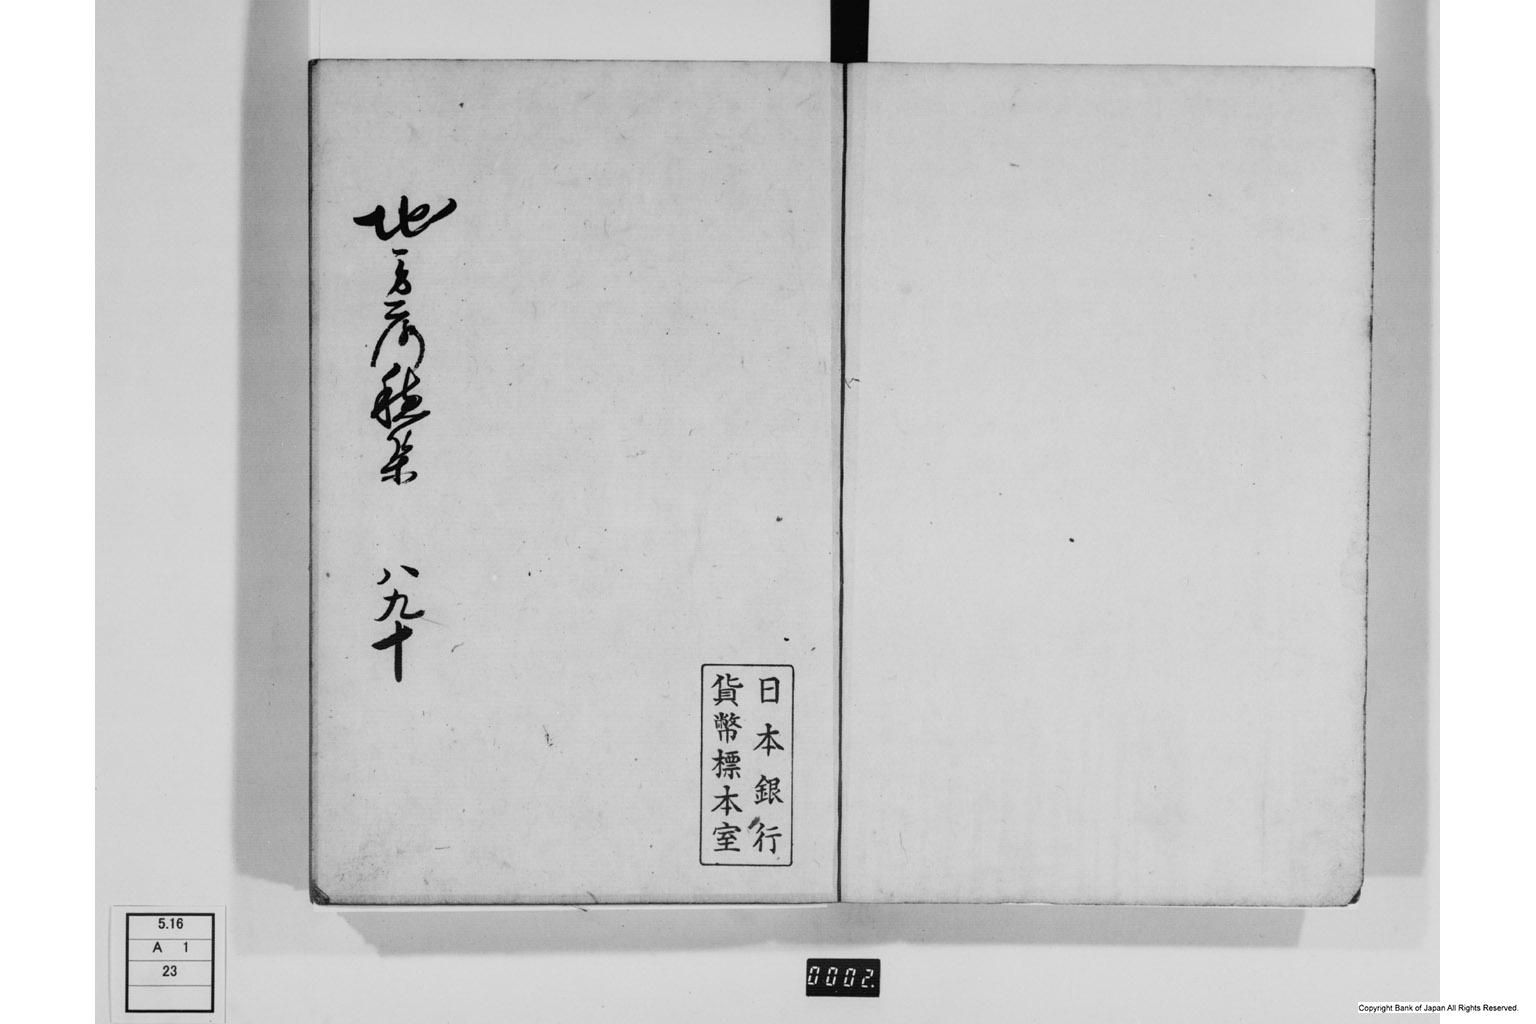 地方落穂集 八九十
日本銀行
貨幣標本室
5.16
A 1
23
0002.
Copyright Bank of Japan All Rights Reserved.